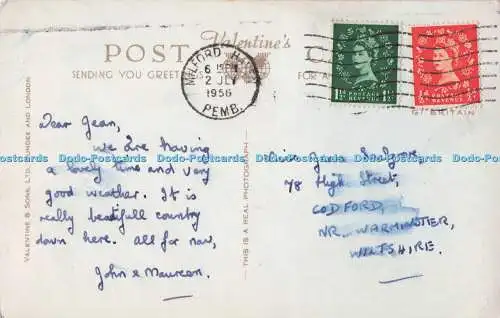 POST CARD
Valentine's
SENDING YOU GREETINGS
FOR A
MILFORD HAVEN
6 15 PM
2 JLY
1956
PEMB.
POSTAGE REVENUE
1½D 1½
POSTAGE REVENUE
½D ½
GT BRITAIN
Dear Jean,
We are having
a lovely time and very
good weather. It is
really beautifull country
down here. All for now,
John & Maureen.
Jean
78 High Street,
CODFORD,
NR. WARMINSTER,
WILTSHIRE.
VALENTINE & SONS, LTD., DUNDEE AND LONDON
THIS IS A REAL PHOTOGRAPH
Dodo-Postcards Dodo-Postcards Dodo-Postcards Dodo-Postcards